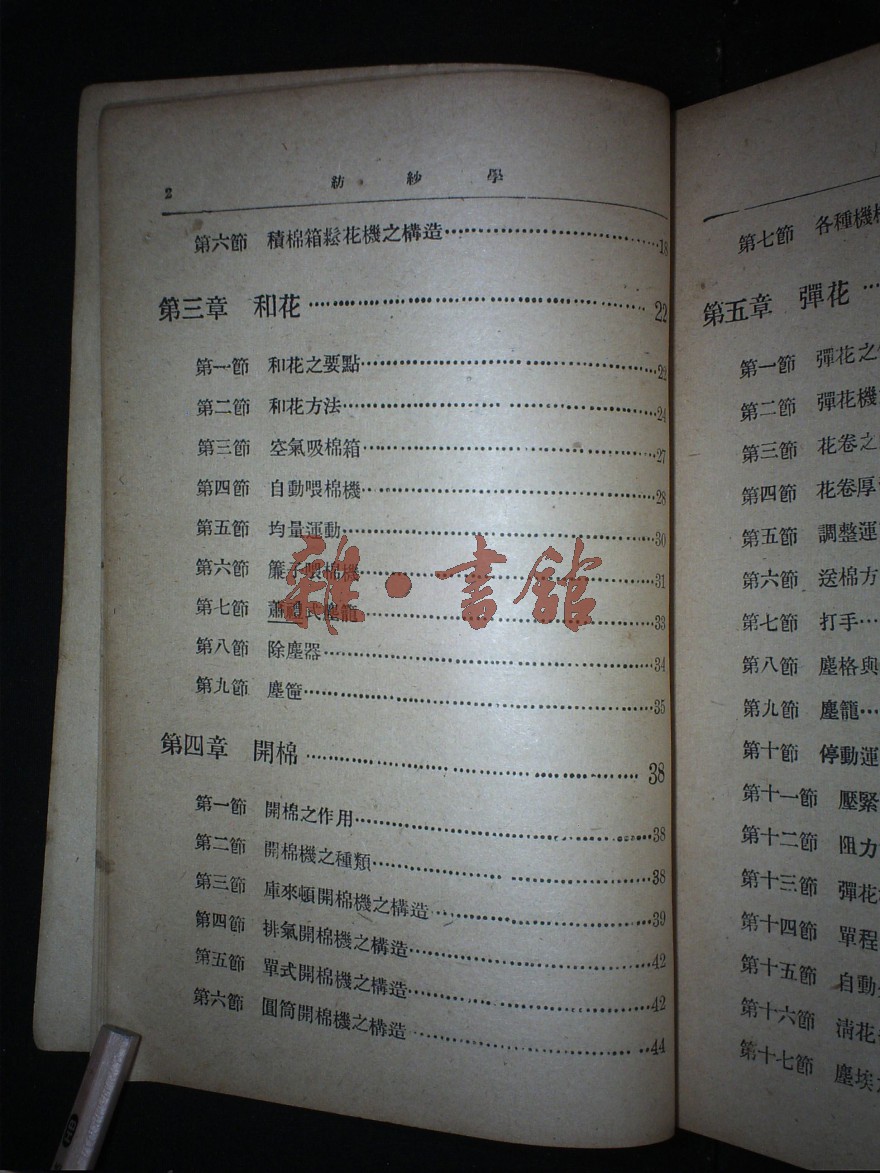 2 紡紗學
第六節 積棉箱鬆花機之構造 18
第三章 和花 22
第一節 和花之要點 22
第二節 和花方法 24
第三節 空氣吸棉箱 27
第四節 自動喂棉機 28
第五節 均量運動 30
第六節 簾子喂棉機 31
第七節 蕭禮式塵籠 33
第八節 除塵器 34
第九節 塵箽 35
第四章 開棉 38
第一節 開棉之作用 38
第二節 開棉機之種類 38
第三節 庫來頓開棉機之構造 39
第四節 排氣開棉機之構造 42
第五節 單式開棉機之構造 42
第六節 圓筒開棉機之構造 44
第七節 各種機
第五章 彈花
第一節 彈花之
第二節 彈花機
第三節 花卷之
第四節 花卷厚
第五節 調整運
第六節 送棉方
第七節 打手
第八節 塵格與
第九節 塵籠
第十節 停動運
第十一節 壓緊
第十二節 阻力
第十三節 彈花
第十四節 單程
第十五節 自動
第十六節 清花
第十七節 塵埃
雜·書館